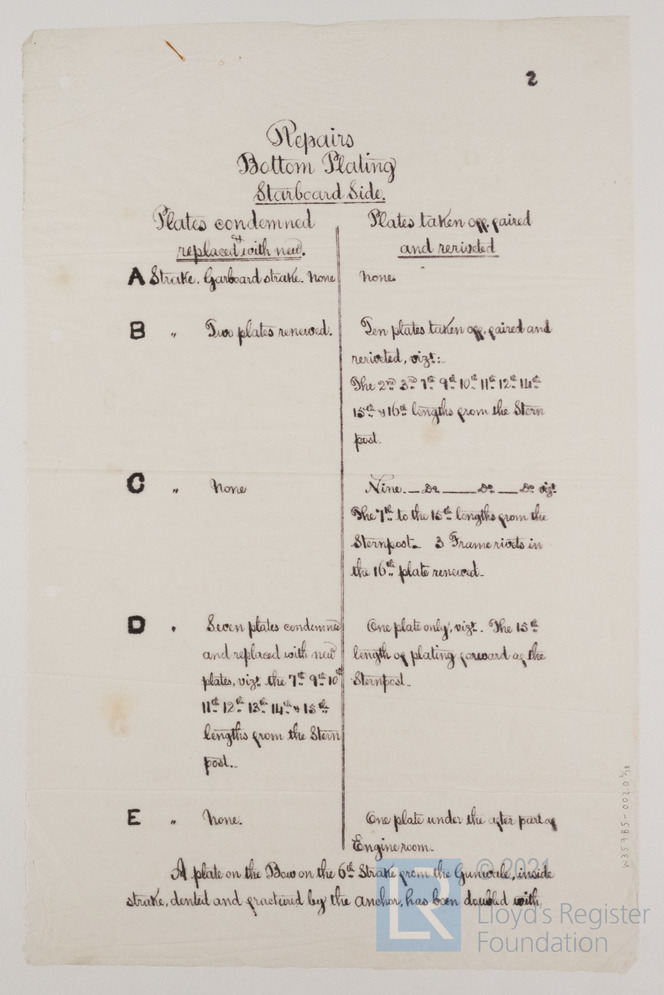 2
Repairs
Bottom Plating
Starboard Side.
Plates condemned
replaced with new.
Plates taken off, faired
and reriveted
A Strake, Garboard strake. None
None
B " Two plates renewed.
Ten plates taken off, faired and
reriveted, vizt:-
The 2nd 3rd 7th 9th 10th 11th 12th 14th
15th & 16th lengths from the Stern
post.
C " None
Nine — Do — Do — Do vizt
The 7th to the 15th lengths from the
Sternpost. 3 Frame rivets in
the 16th plate renewed.
D " Seven plates condemned
and replaced with new
plates, vizt the 7th 9th 10th
11th 12th 13th 14th & 15th
lengths from the Stern
post.
One plate only, vizt. The 15th
length of plating forward of the
Sternpost.
E " None.
One plate under the after part of
Engine room.
A plate on the Bow on the 6th Strake from the Gunwale, inside
strake, dented and fractured by the anchor, has been doubled with
W35785-0020 2/18
© 2021
LR
Lloyd's Register
Foundation